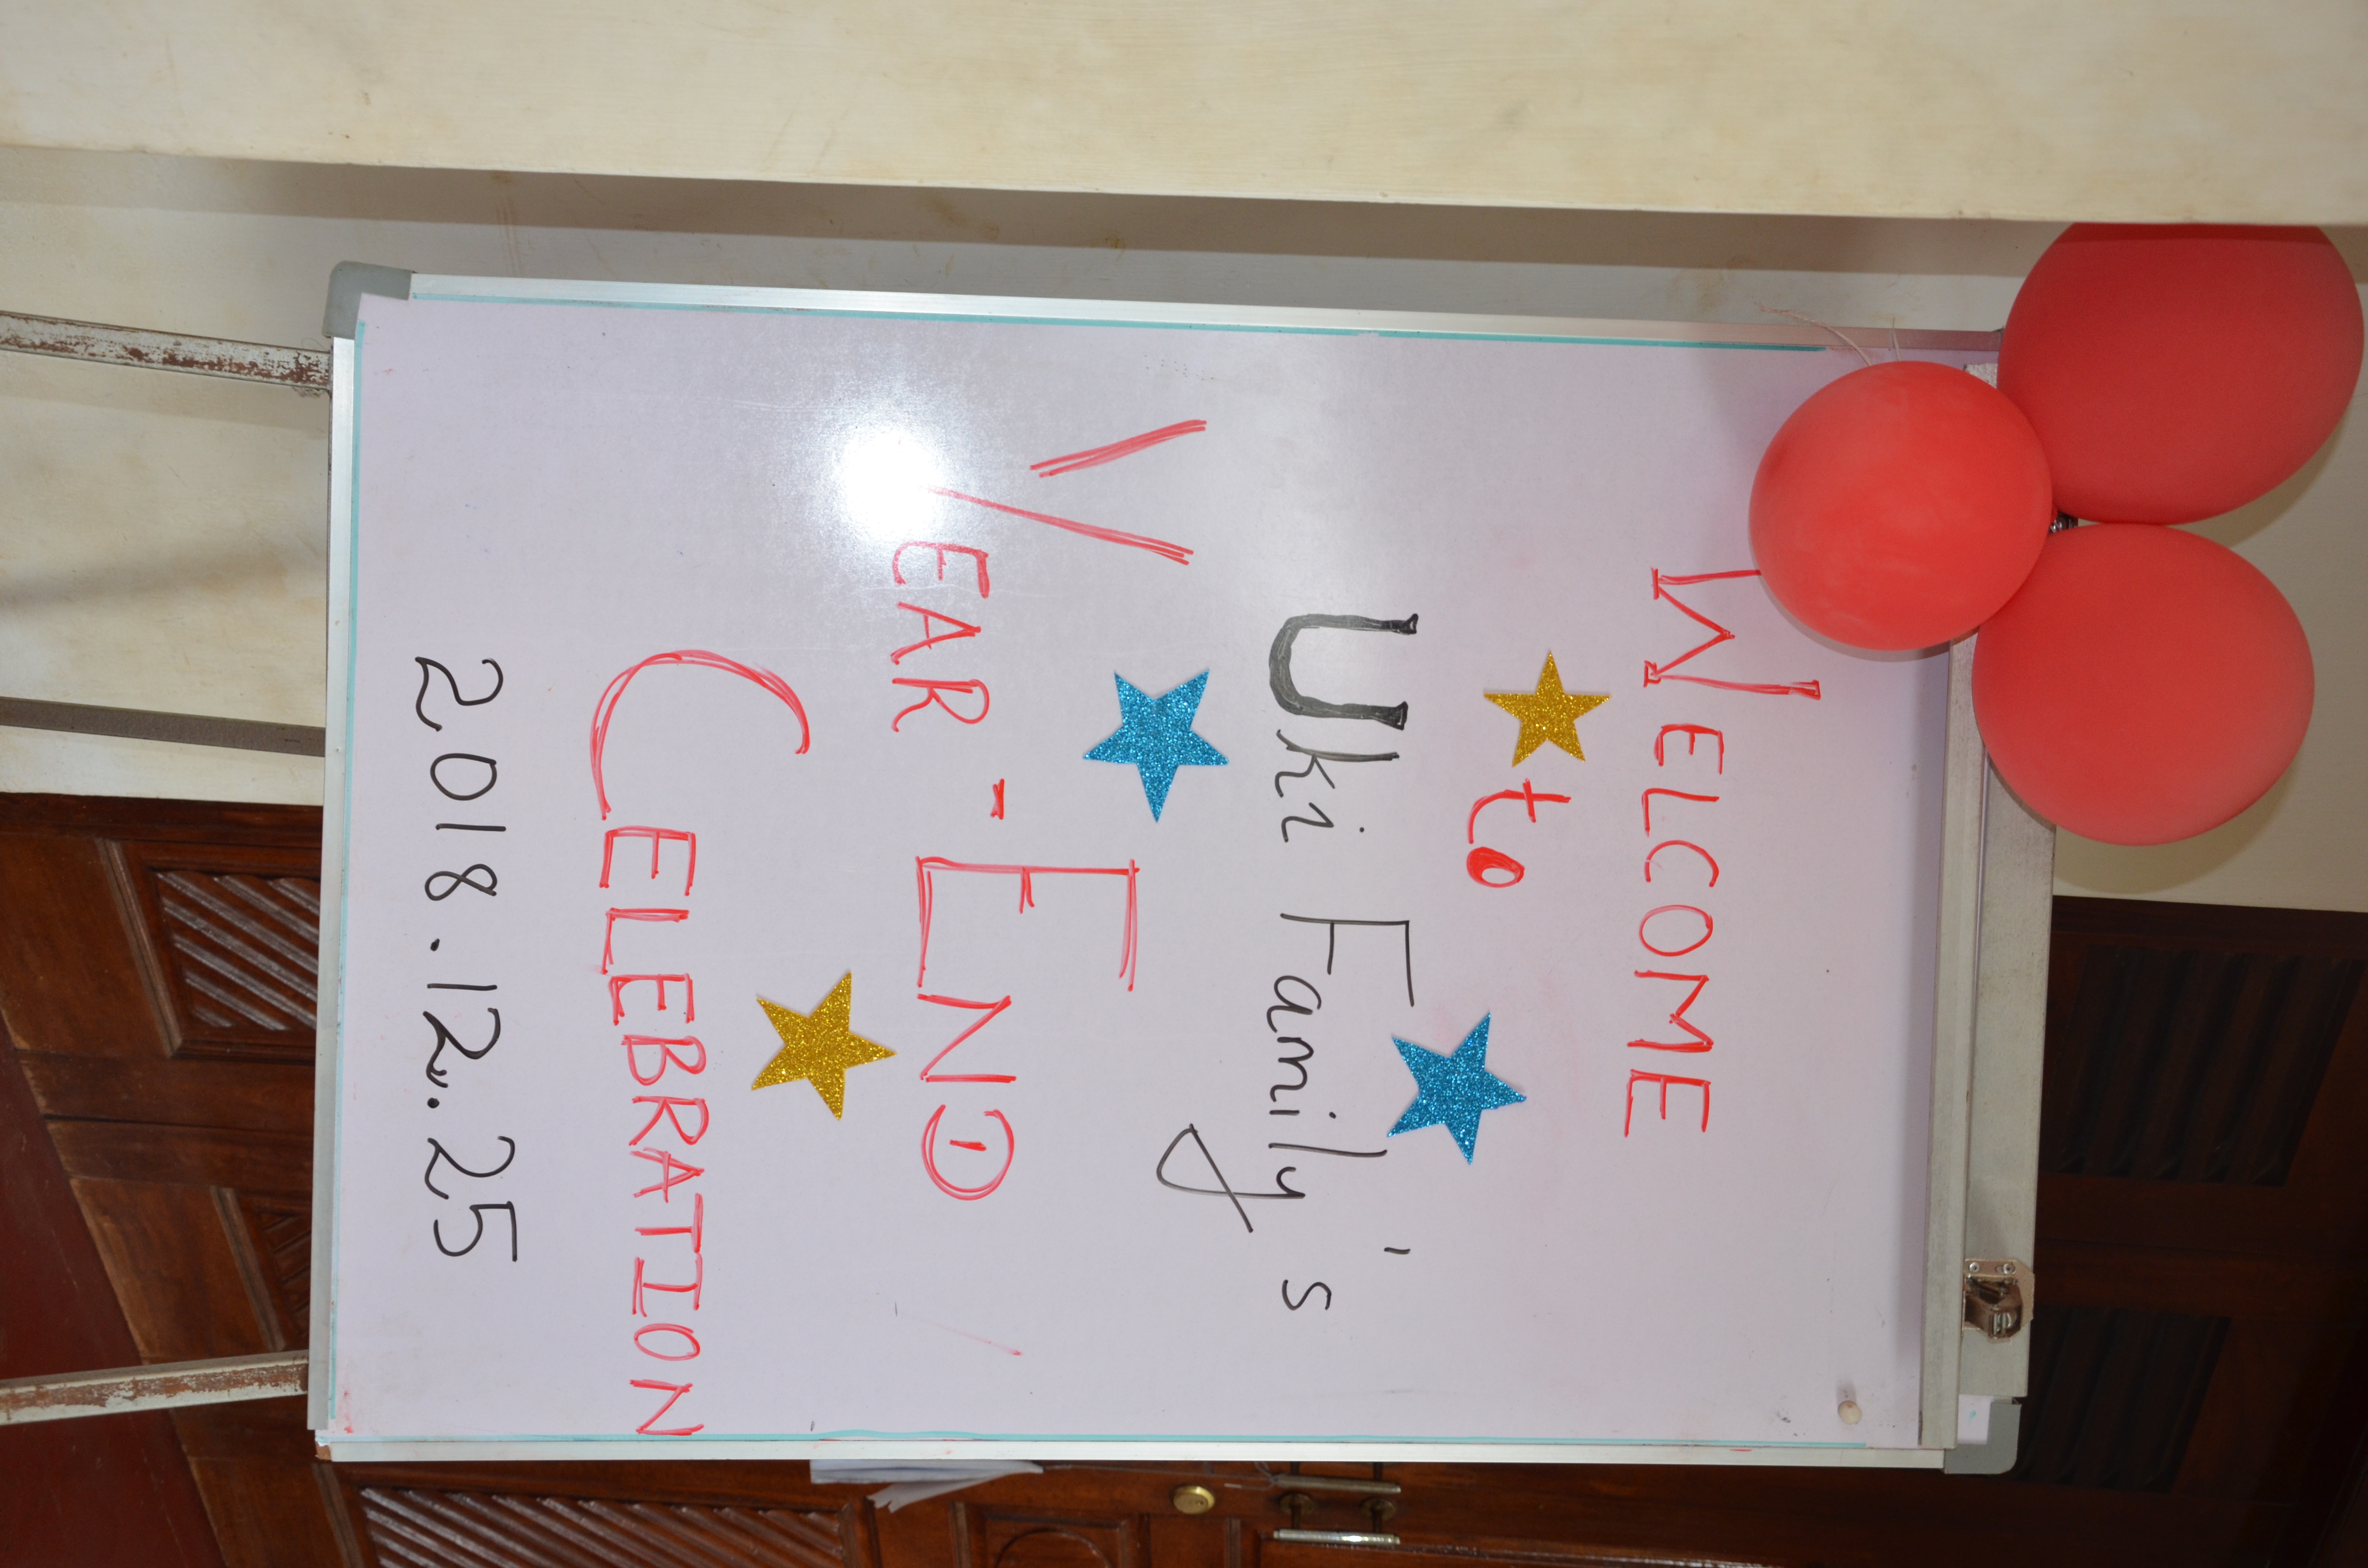 WELCOME
to
Uki Family's
YEAR-END
CELEBRATION
2018.12.25